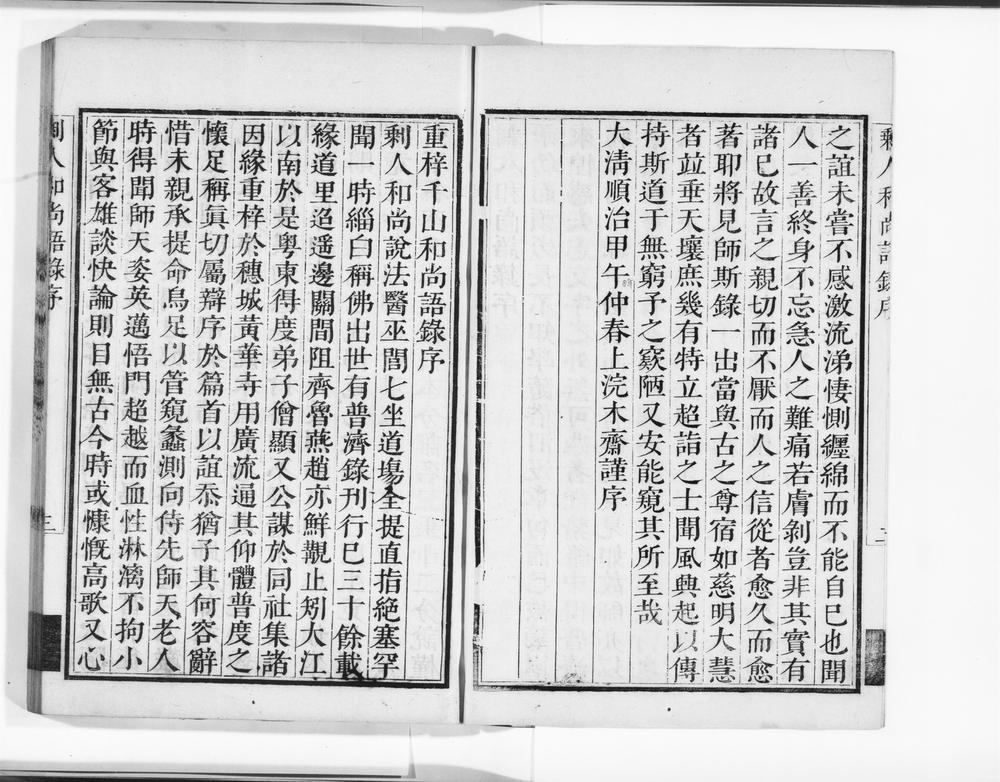 剩人和尚語錄序
二
之誼未嘗不感激流涕悽惻纏綿而不能自已也聞
人一善終身不忘急人之難痛若膚剝豈非其實有
諸已故言之親切而不厭而人之信從者愈久而愈
著耶將見師斯錄一出當與古之尊宿如慈明大慧
者並垂天壤庶幾有特立超詣之士聞風興起以傳
持斯道于無窮予之窾陋又安能窺其所至哉
大清順治甲午仲春上浣木齋謹序
重梓千山和尚語錄序
剩人和尚說法醫巫閭七坐道場全提直指絕塞罕
聞一時緇白稱佛出世有普濟錄刊行已三十餘載
緣道里迢遥邊關間阻齊魯燕趙亦鮮覯止矧大江
以南於是粵東得度弟子僧顯又公謀於同社集諸
因緣重梓於穗城黃華寺用廣流通其仰體普度之
懷足稱眞切屬辯序於篇首以誼忝猶子其何容辭
惜未親承提命烏足以管窺蠡測向侍先師天老人
時得聞師天姿英邁悟門超越而血性淋漓不拘小
節與客雄談快論則目無古今時或慷慨高歌又心
剩人和尚語錄序
三